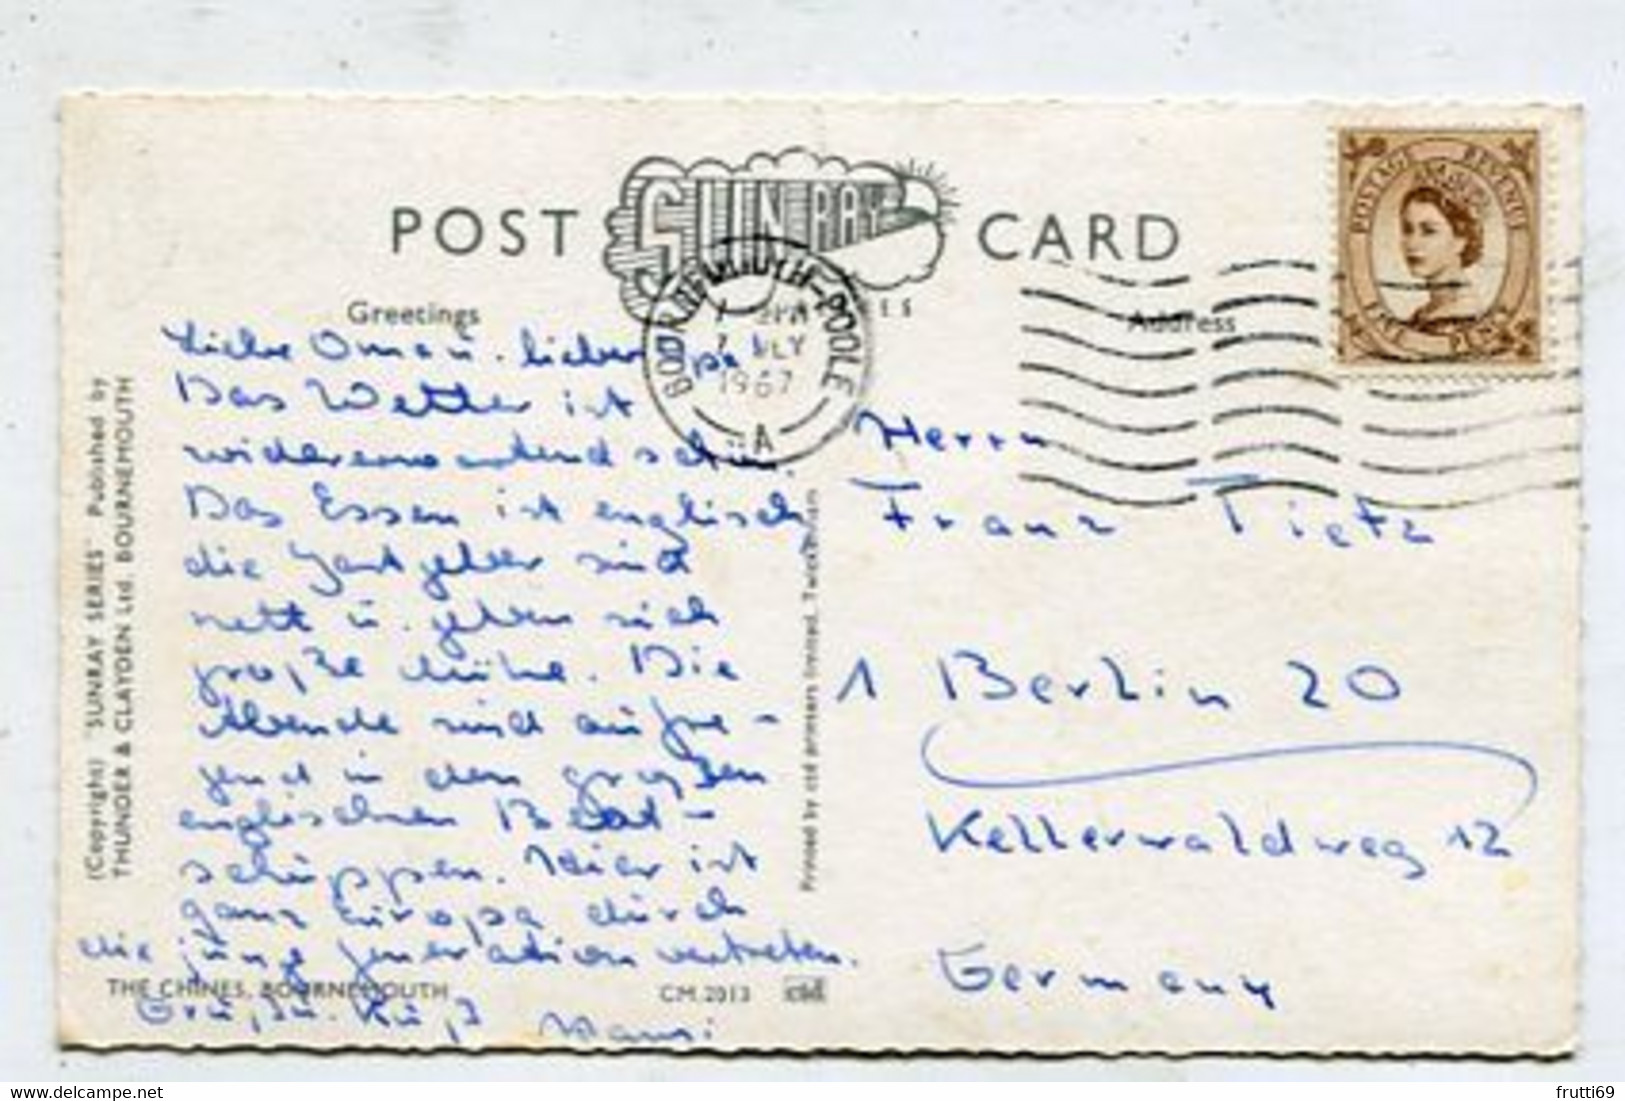 POST SUN RAY CARD
Greetings
Address
BOURNEMOUTH-POOLE
7 JLY
1967
A
POSTAGE REVENUE
Liebe Oma u. lieber
Das Wetter ist
widererwartend schön.
Das Essen ist englisch
die Gastgeber sind
nett u. geben sich
große Mühe. Die
Abende sind aufre-
gend in den großen
englischen Beat-
schuppen. Hier ist
ganz Europa durch
die junge Generation vertreten.
Gruß u. Kuß Hansi
Herrn
Franz Tietz
1 Berlin 20
Kellerwaldweg 12
Germany
(Copyright) "SUNRAY SERIES" Published by
THUNDER & CLAYDEN Ltd. BOURNEMOUTH
Printed by ctd printers limited, Twickenham
THE CHINES, BOURNEMOUTH CM.2013
frutti69